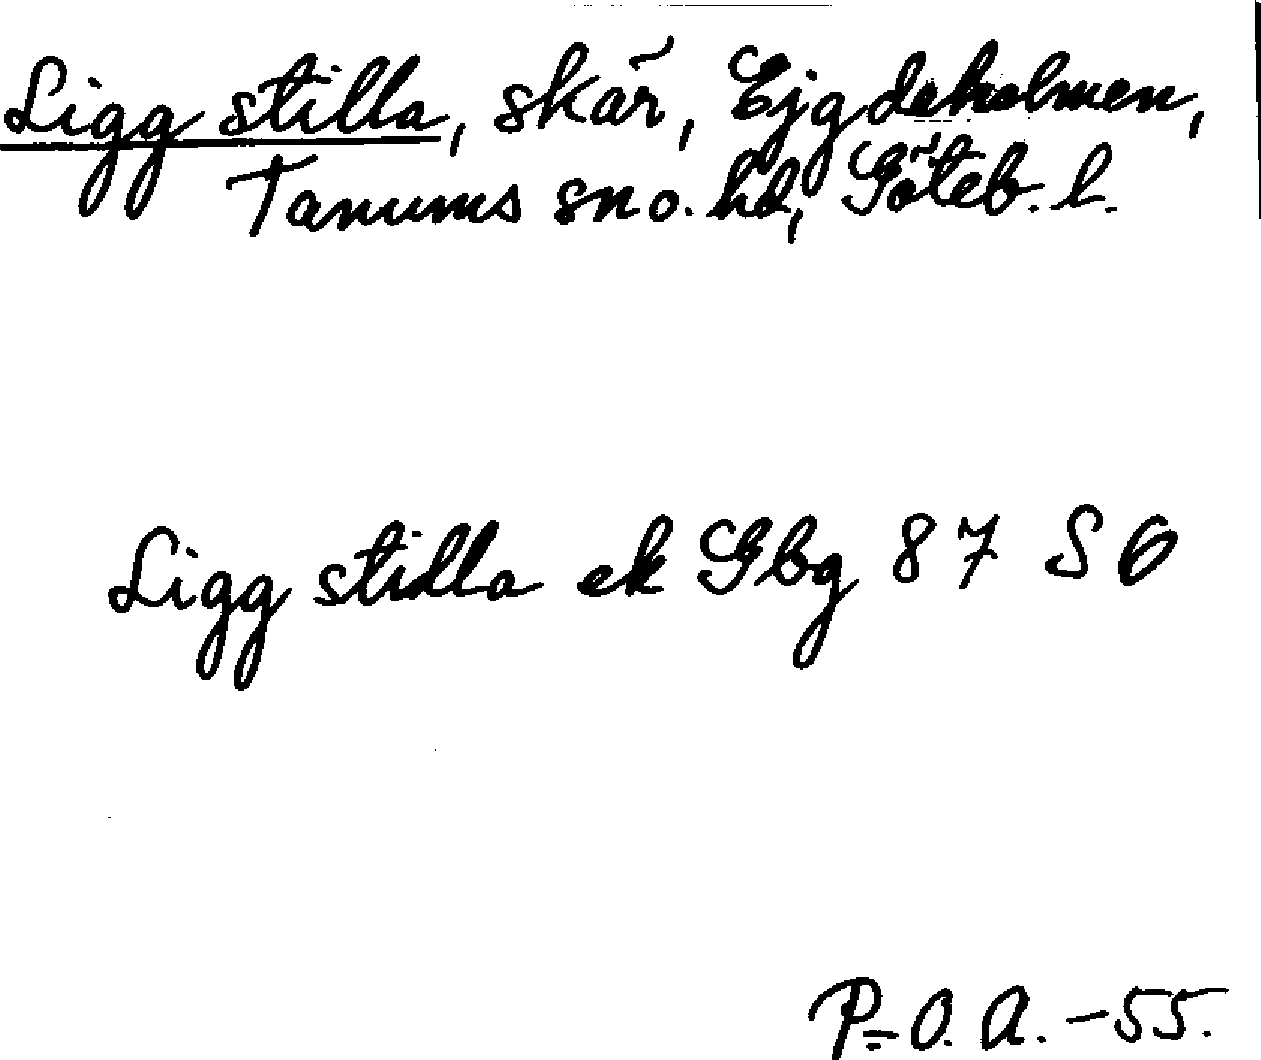 Ligg stilla, skär, Ejgdeholmen,
Tanums sn o. hd, Göteb. l.
Ligg stilla ek Gbg 87 SO
P-O. A. -55.